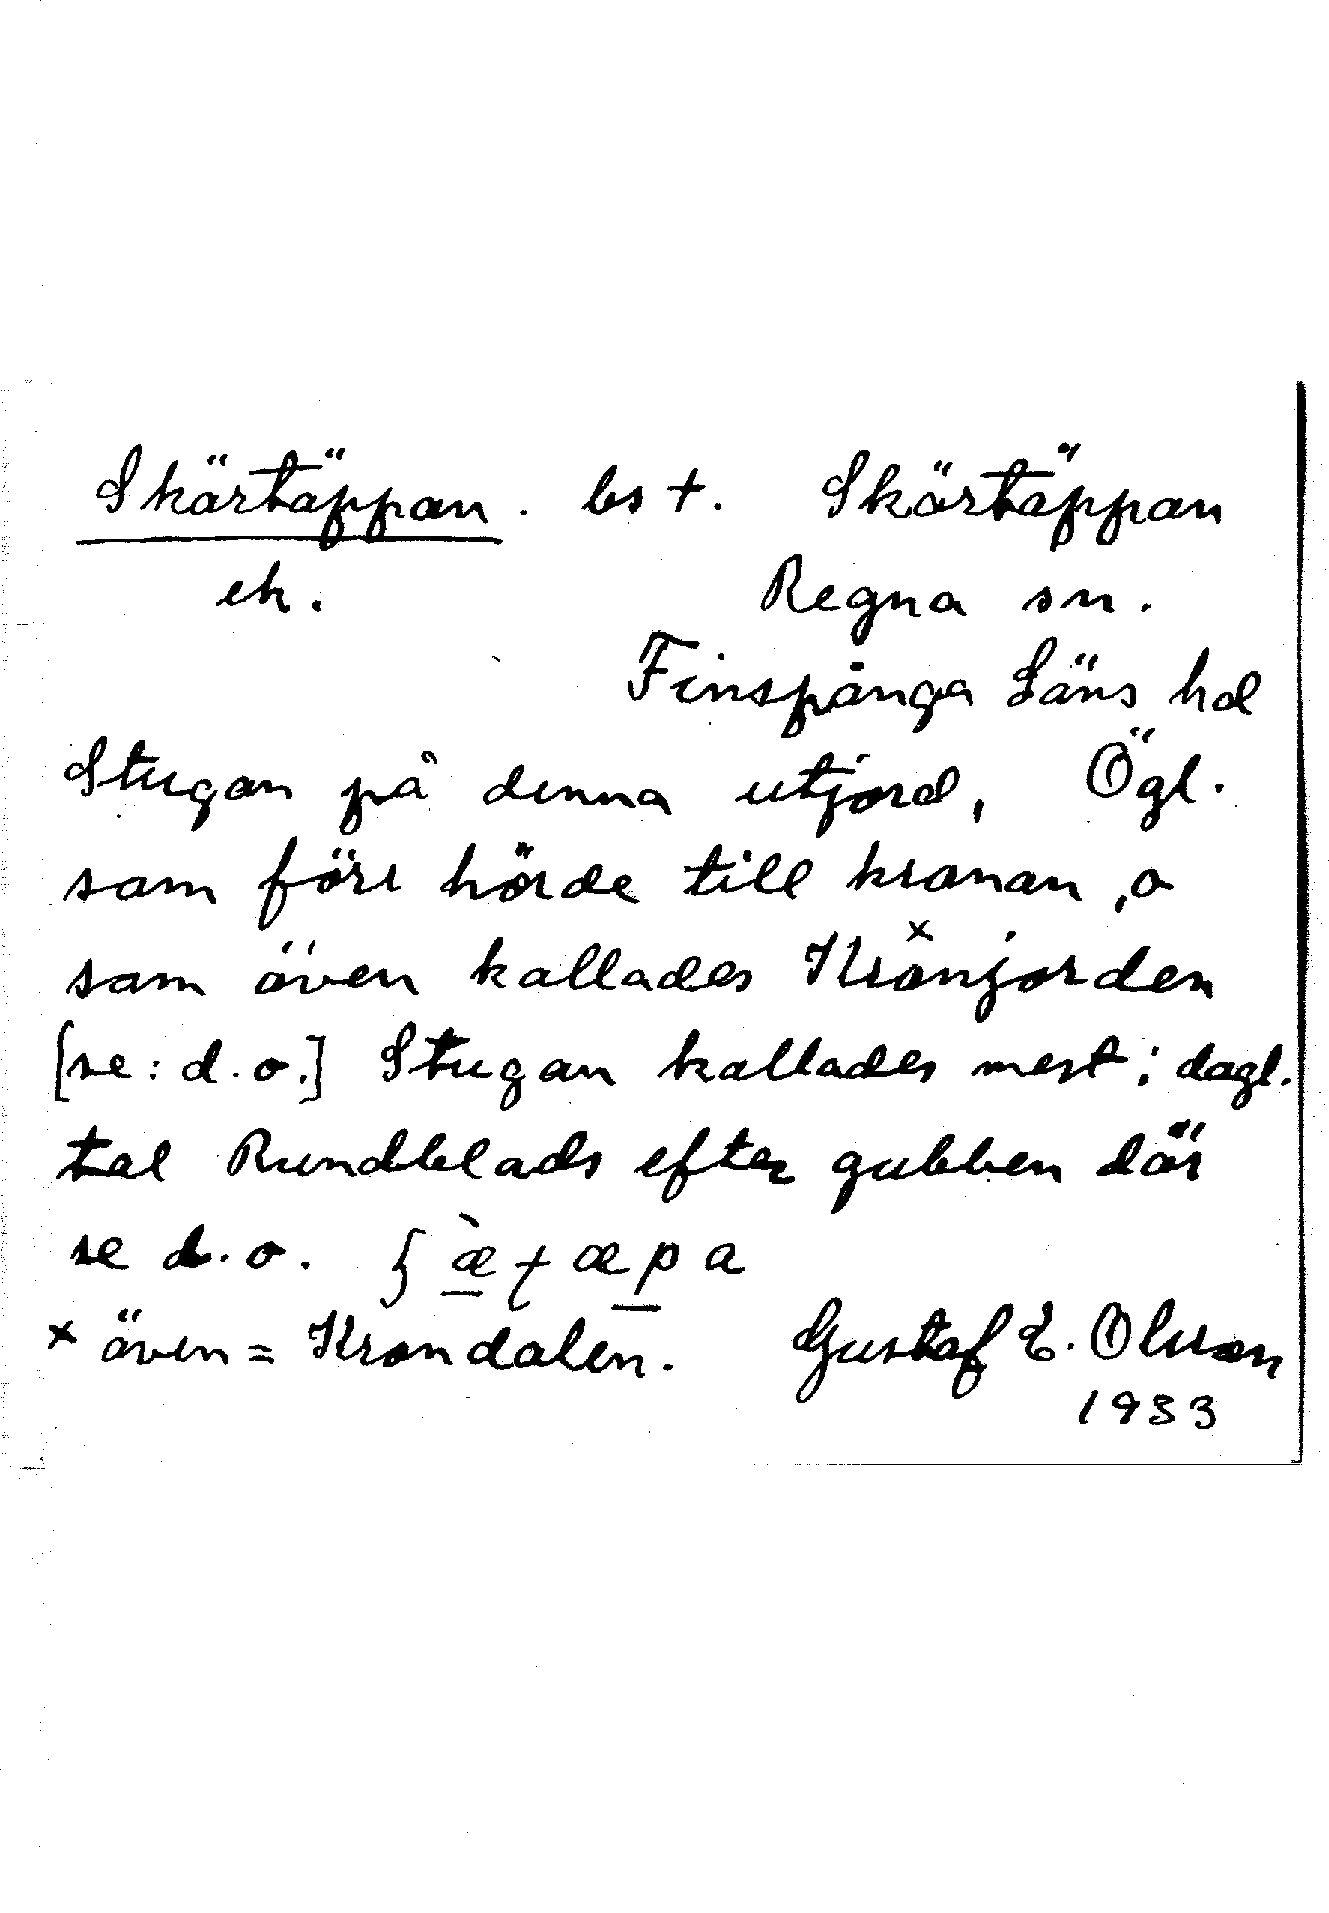 Skärtäppan. bs +. Skärtäppan
ek. Regna sn.
Finspånga Läns hd
Stugan på denna utjord, Ögl.
som förr hörde till kronan, o
som även kallades Kronjorden x
[se: d.o.] Stugan kallades mest i dagl.
tal Rundblads efter gubben där
se d.o.
x även = Krondalen. Gustaf E. Olsson
1933